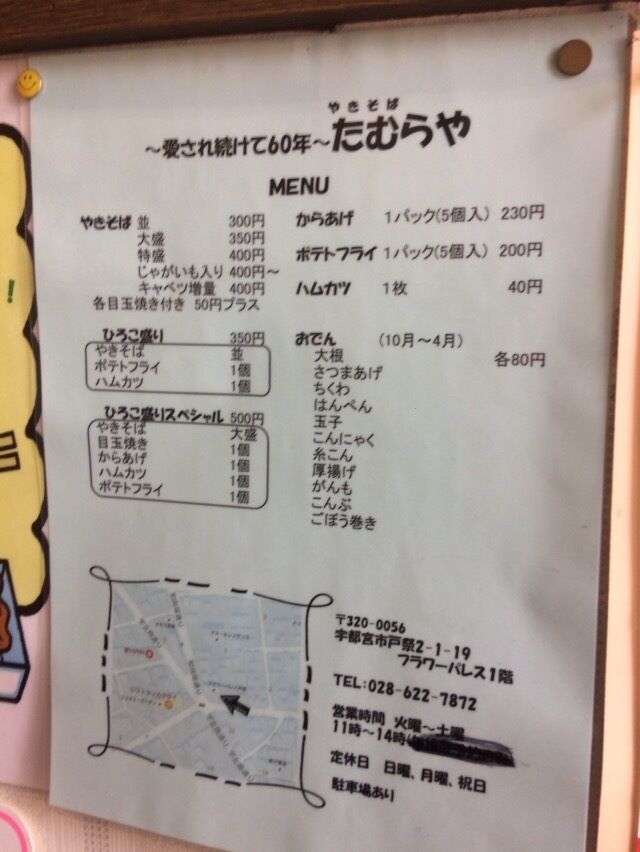 やきそば
～愛され続けて60年～たむらや
MENU
やきそば 並 300円
大盛 350円
特盛 400円
じゃがいも入り 400円～
キャベツ増量 400円
各目玉焼き付き 50円プラス
ひろこ盛り 350円
やきそば 並
ポテトフライ 1個
ハムカツ 1個
ひろこ盛りスペシャル 500円
やきそば 大盛
目玉焼き 1個
からあげ 1個
ハムカツ 1個
ポテトフライ 1個
からあげ 1パック(5個入) 230円
ポテトフライ 1パック(5個入) 200円
ハムカツ 1枚 40円
おでん (10月～4月)
大根 各80円
さつまあげ
ちくわ
はんぺん
玉子
こんにゃく
糸こん
厚揚げ
がんも
こんぶ
ごぼう巻き
〒320-0056
宇都宮市戸祭2-1-19
フラワーパレス1階
TEL:028-622-7872
営業時間 火曜～土曜
11時～14時
定休日 日曜、月曜、祝日
駐車場あり